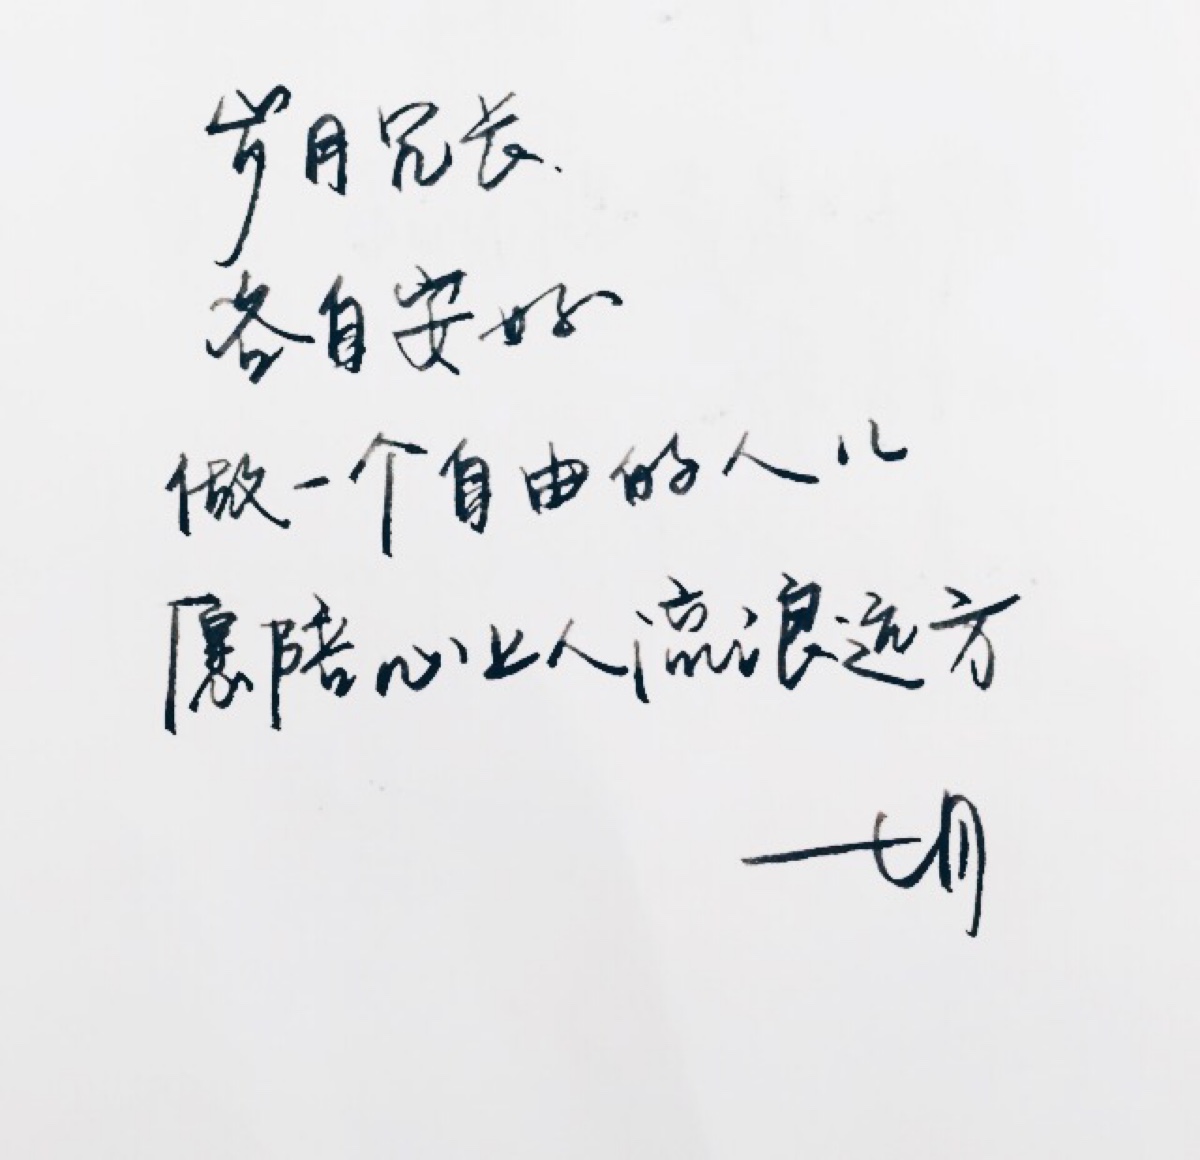 岁月兄长.
各自安好
做一个自由的人儿
愿陪心上人流浪远方